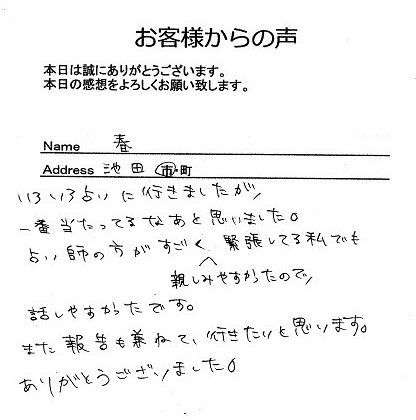 お客様からの声
本日は誠にありがとうございます。
本日の感想をよろしくお願い致します。
Name 春
Address 池田 市・町
いろいろ占いに行きましたが、
一番当たってるなあと思いました。
占い師の方がすごく 緊張してる私でも
親しみやすかったので、
話しやすかったです。
また報告も兼ねて、行きたいと思います。
ありがとうございました。